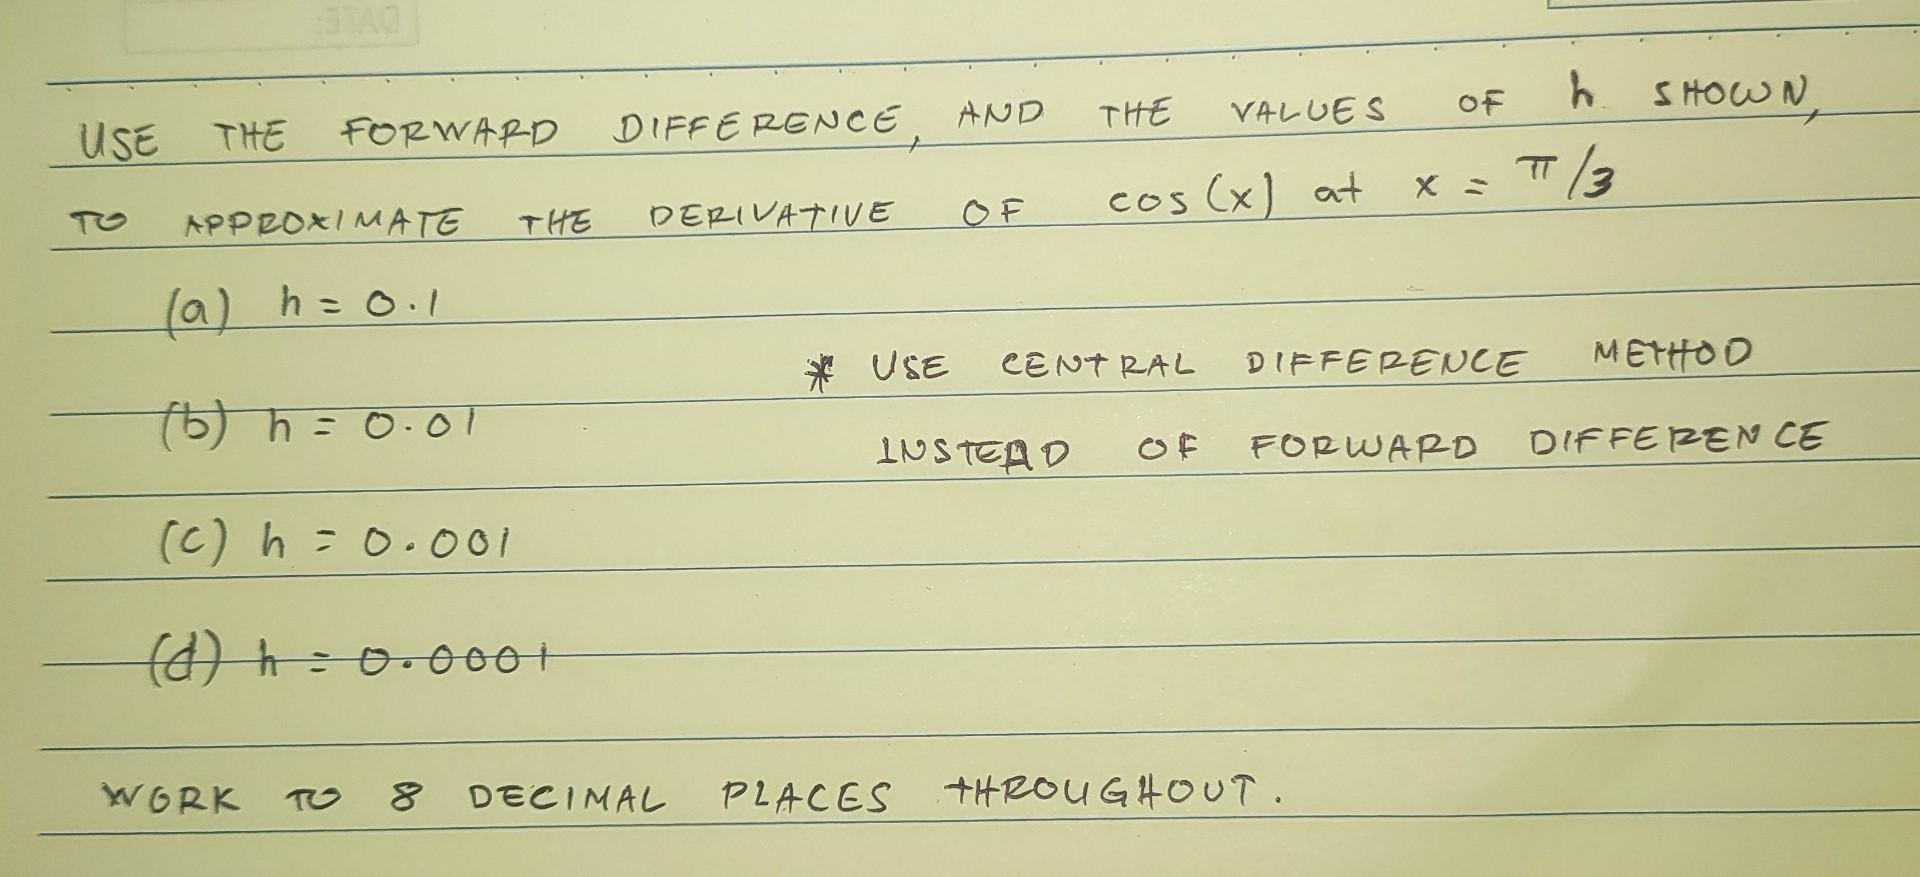 DATE:
USE THE FORWARD DIFFERENCE, AND THE VALUES OF h SHOWN,
TO APPROXIMATE THE DERIVATIVE OF cos(x) at x = π/3
(a) h = 0.1
* USE CENTRAL DIFFERENCE METHOD
(b) h = 0.01
INSTEAD OF FORWARD DIFFERENCE
(c) h = 0.001
(d) h = 0.0001
WORK TO 8 DECIMAL PLACES THROUGHOUT.